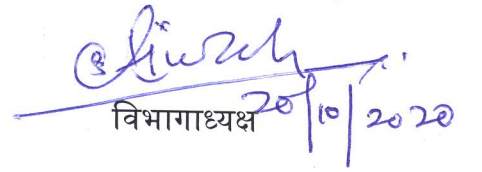 विभागाध्यक्ष
20/10/2020